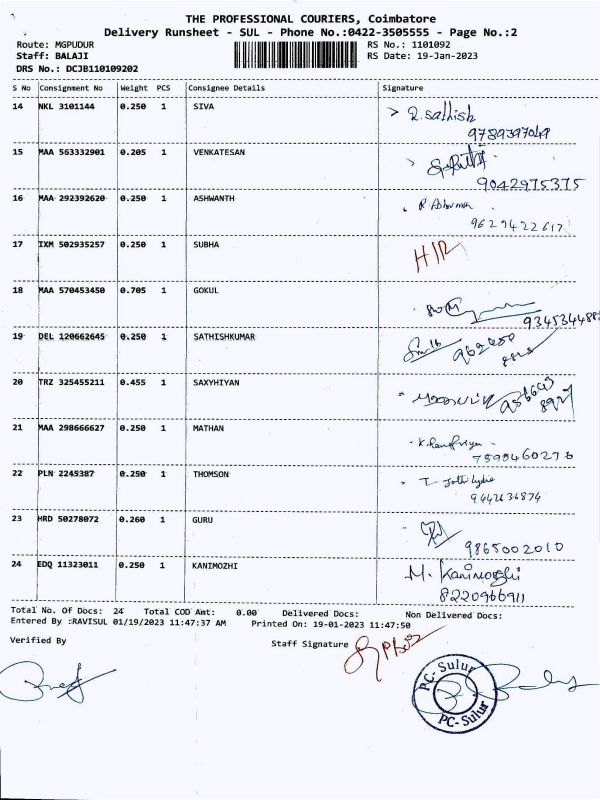 THE PROFESSIONAL COURIERS, Coimbatore
Delivery Runsheet - SUL - Phone No.:0422-3505555 - Page No.:2
Route: MGPUDUR RS No.: 1101092
Staff: BALAJI RS Date: 19-Jan-2023
DRS No.: DCJB110109202
S No Consignment No Weight PCS Consignee Details Signature
14 NKL 3101144 0.250 1 SIVA R.Sathish
9789397049
15 MAA 563332901 0.205 1 VENKATESAN
9042975375
16 MAA 292392620 0.250 1 ASHWANTH
9629422617
17 IXM 502935257 0.250 1 SUBHA
18 MAA 570453450 0.705 1 GOKUL
19 DEL 120662645 0.250 1 SATHISHKUMAR
20 TRZ 325455211 0.455 1 SAXYHIYAN
21 MAA 298666627 0.250 1 MATHAN
22 PLN 2245387 0.250 1 THOMSON
23 HRD 50278072 0.260 1 GURU
9865002010
24 EDQ 11323011 0.250 1 KANIMOZHI M. Kanimozhi
8220966911
Total No. Of Docs: 24 Total COD Amt: 0.00 Delivered Docs: Non Delivered Docs:
Entered By :RAVISUL 01/19/2023 11:47:37 AM Printed On: 19-01-2023 11:47:50
Verified By Staff Signature
PC-Sulur
PC-Sulur